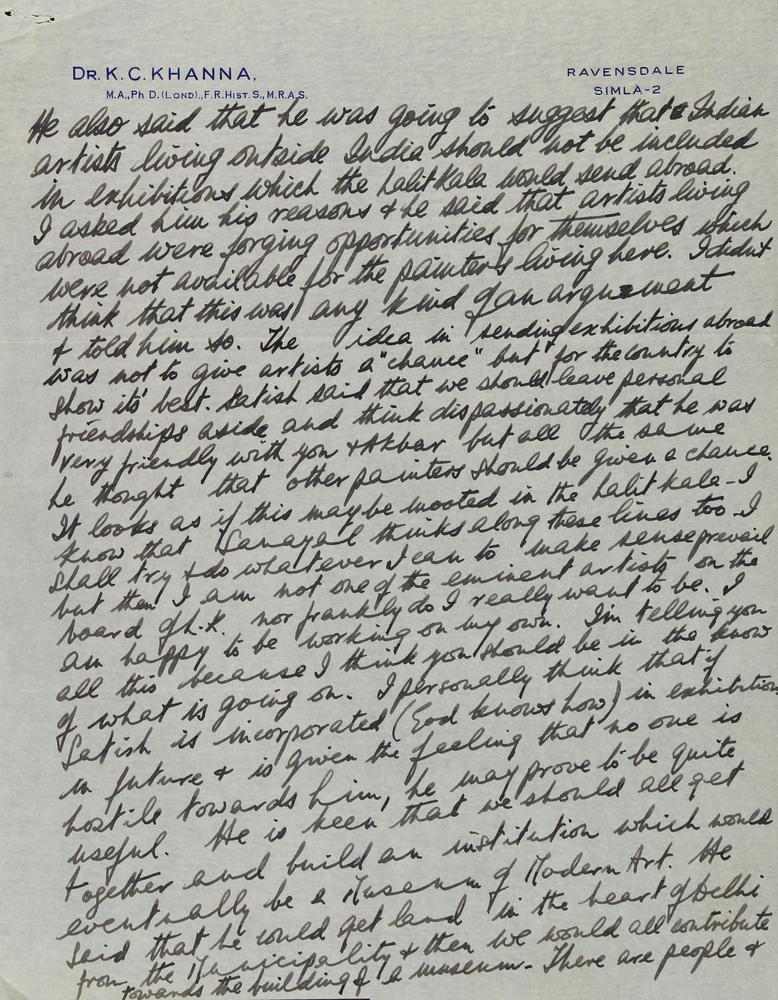 DR. K. C. KHANNA,
M.A., Ph D. (LOND)., F.R. HIST. S., M.R.A.S.
RAVENSDALE
SIMLA-2
He also said that he was going to suggest that Indian
artists living outside India should not be included
in exhibitions which the Lalit Kala would send abroad.
I asked him his reasons & he said that artists living
abroad were forging opportunities for themselves which
were not available for the painters living here. I didn't
think that this was any kind of an argument
& told him so. The idea in sending exhibitions abroad
was not to give artists a "chance" but for the country to
show its' best. Satish said that we should leave personal
friendships aside and think dispassionately that he was
very friendly with you & Akbar but all the same
he thought that other painters should be given a chance.
It looks as if this may be mooted in the Lalit Kala - I
know that Sanayal thinks along these lines too. I
shall try & do whatever I can to make sense prevail
but then I am not one of the eminent artists on the
board of L.K. nor frankly do I really want to be. I
am happy to be working on my own. I'm telling you
all this because I think you should be in the know
of what is going on. I personally think that if
Satish is incorporated (God knows how) in exhibitions
in future & is given the feeling that no one is
hostile towards him, he may prove to be quite
useful. He is keen that we should all get
together and build an institution which would
eventually be a Museum of Modern Art. He
said that he could get land in the heart of Delhi
from the Municipality & then we would all contribute
towards the building of a museum. There are people &